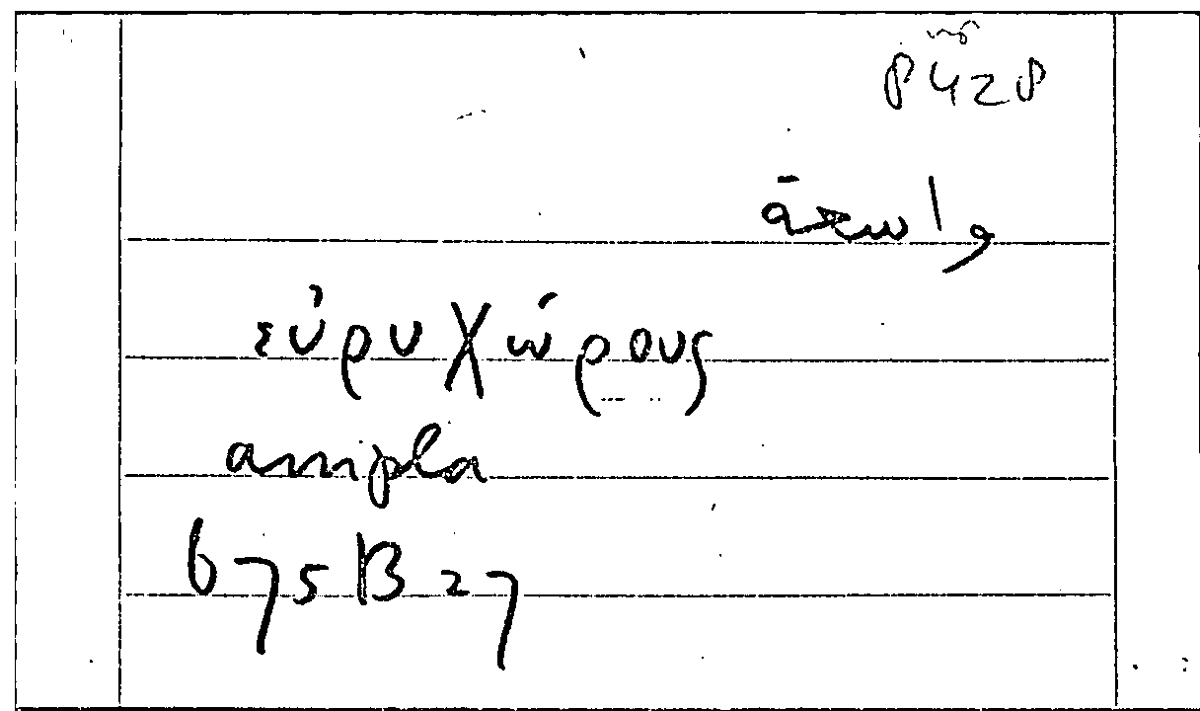 واسعة
εὐρυχώρους
ampla
675 B 27